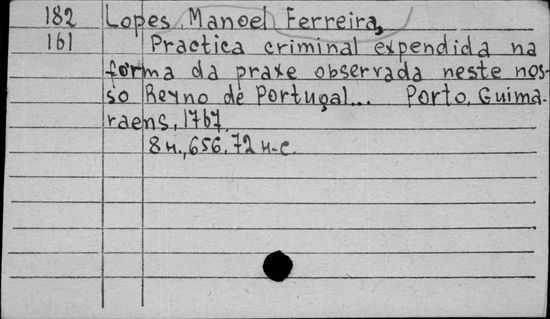 182 Lopes, Manoel Ferreira,
161 Practica criminal expendida na
forma da praxe observada neste nos-
so Reyno de Portugal... Porto, Guima-
raens, 1767.
8 н., 656, 72 н. с.